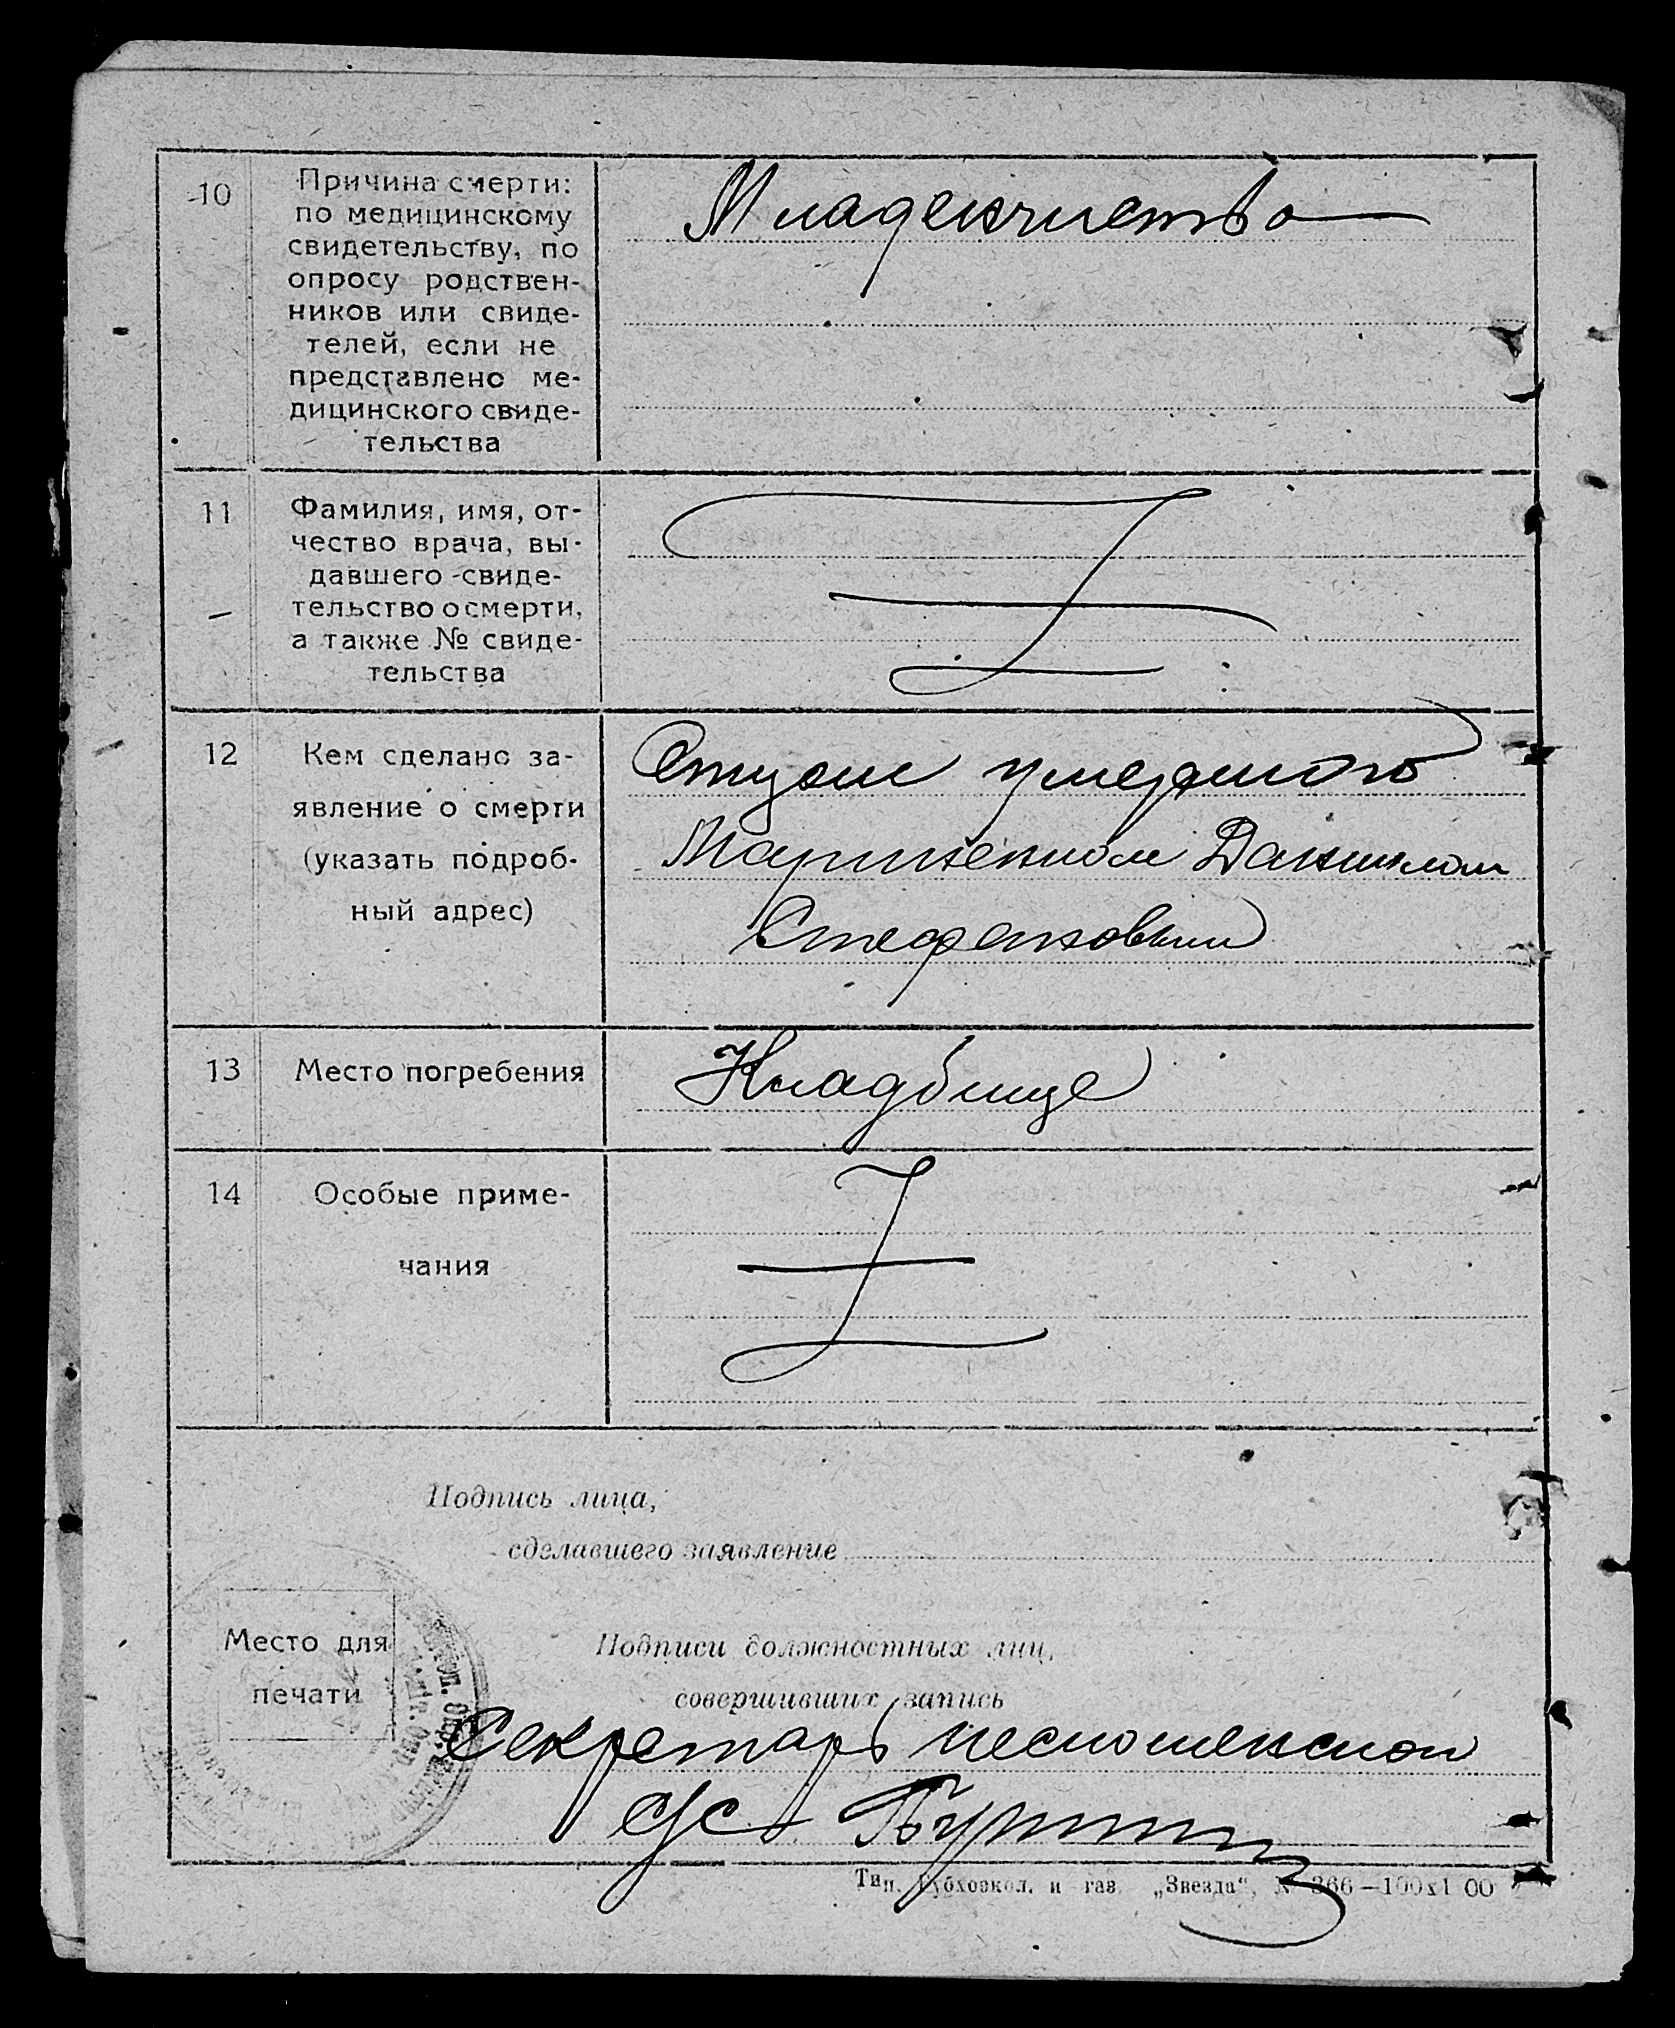 10
Причина смерти:
по медицинскому
свидетельству, по
опросу родствен-
ников или свиде-
телей, если не
представлено ме-
дицинского свиде-
тельства
Младенчиство
11
Фамилия, имя, от-
чество врача, вы-
давшего свиде-
тельство о смерти,
а также № свиде-
тельства
12
Кем сделано за-
явление о смерти
(указать подроб-
ный адрес)
Отцом умершого
Мартиненком Данилом
Стефановым
13
Место погребения
Кладбище
14
Особые приме-
чания
Подпись лица,
сделавшего заявление
Место для
печати
Подписи должностных лиц,
совершивших запись
Секретарь
с/с
Тип. Губхозкол. и газ. „Звезда“, № 366—100х1 00